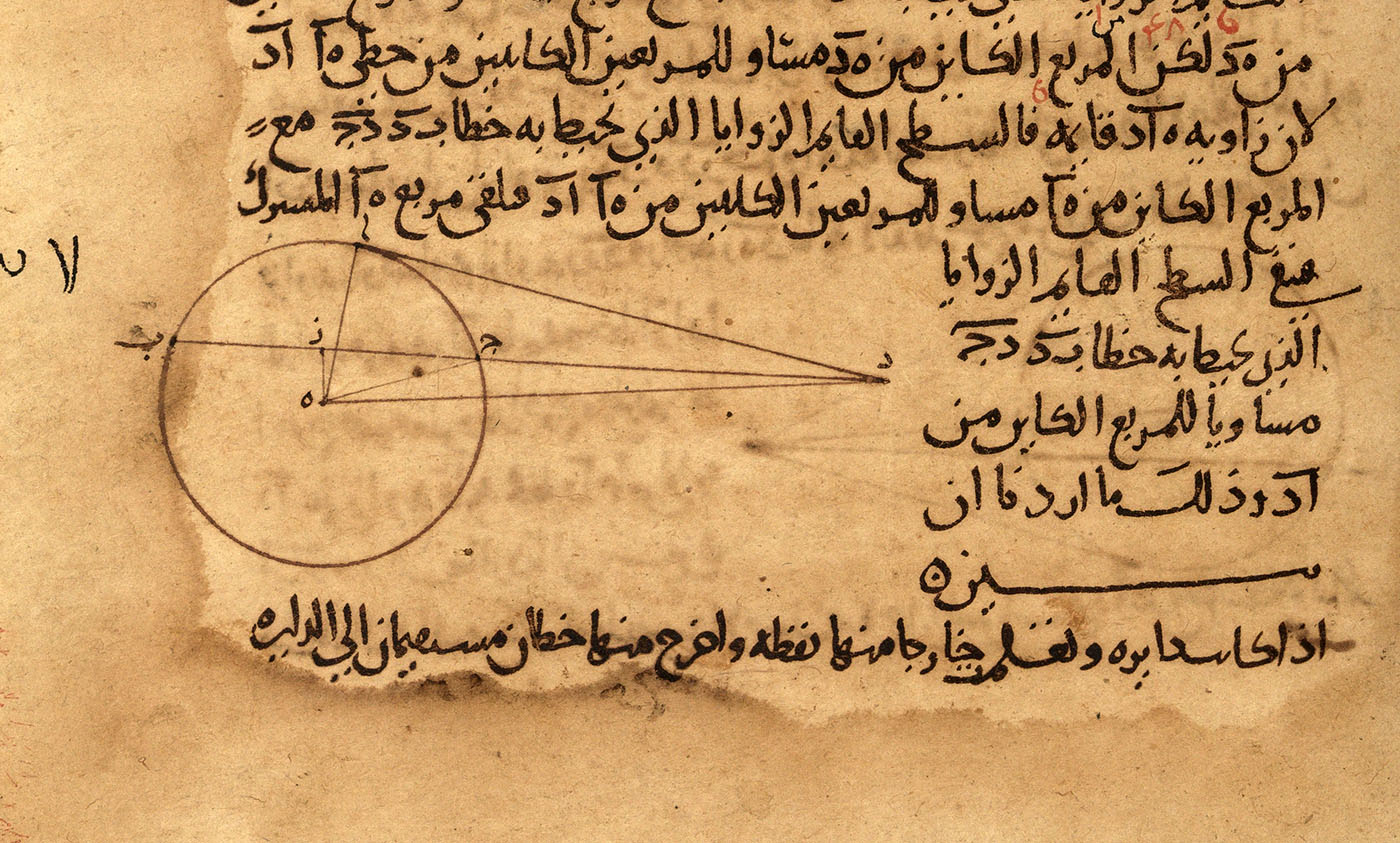 من ه د لكن المربع الكاين من ه د مساو للمربعين الكاينين من خطي ه ا ا د
لان زاويه ه ا د قايمه فالسطح القايم الزوايا الذي يحيط به خطا ب د د ج مع
المربع الكاين من ه ا مساو للمربعين الكاينين من ه ا ا د فلقى مربع ه ا المشترك
فيبقى السطح القايم الزوايا
الذي يحيط به خطا ب د د ج
مساويا للمربع الكاين من
ا د وذلك ما اردنا ان
نبين ه
اذا كانت دايره وتعلمت خارجا منها نقطه واخرج منها خطان مستقيمان الى الدايره
ا
ب
ز
ج
د
ه
لا